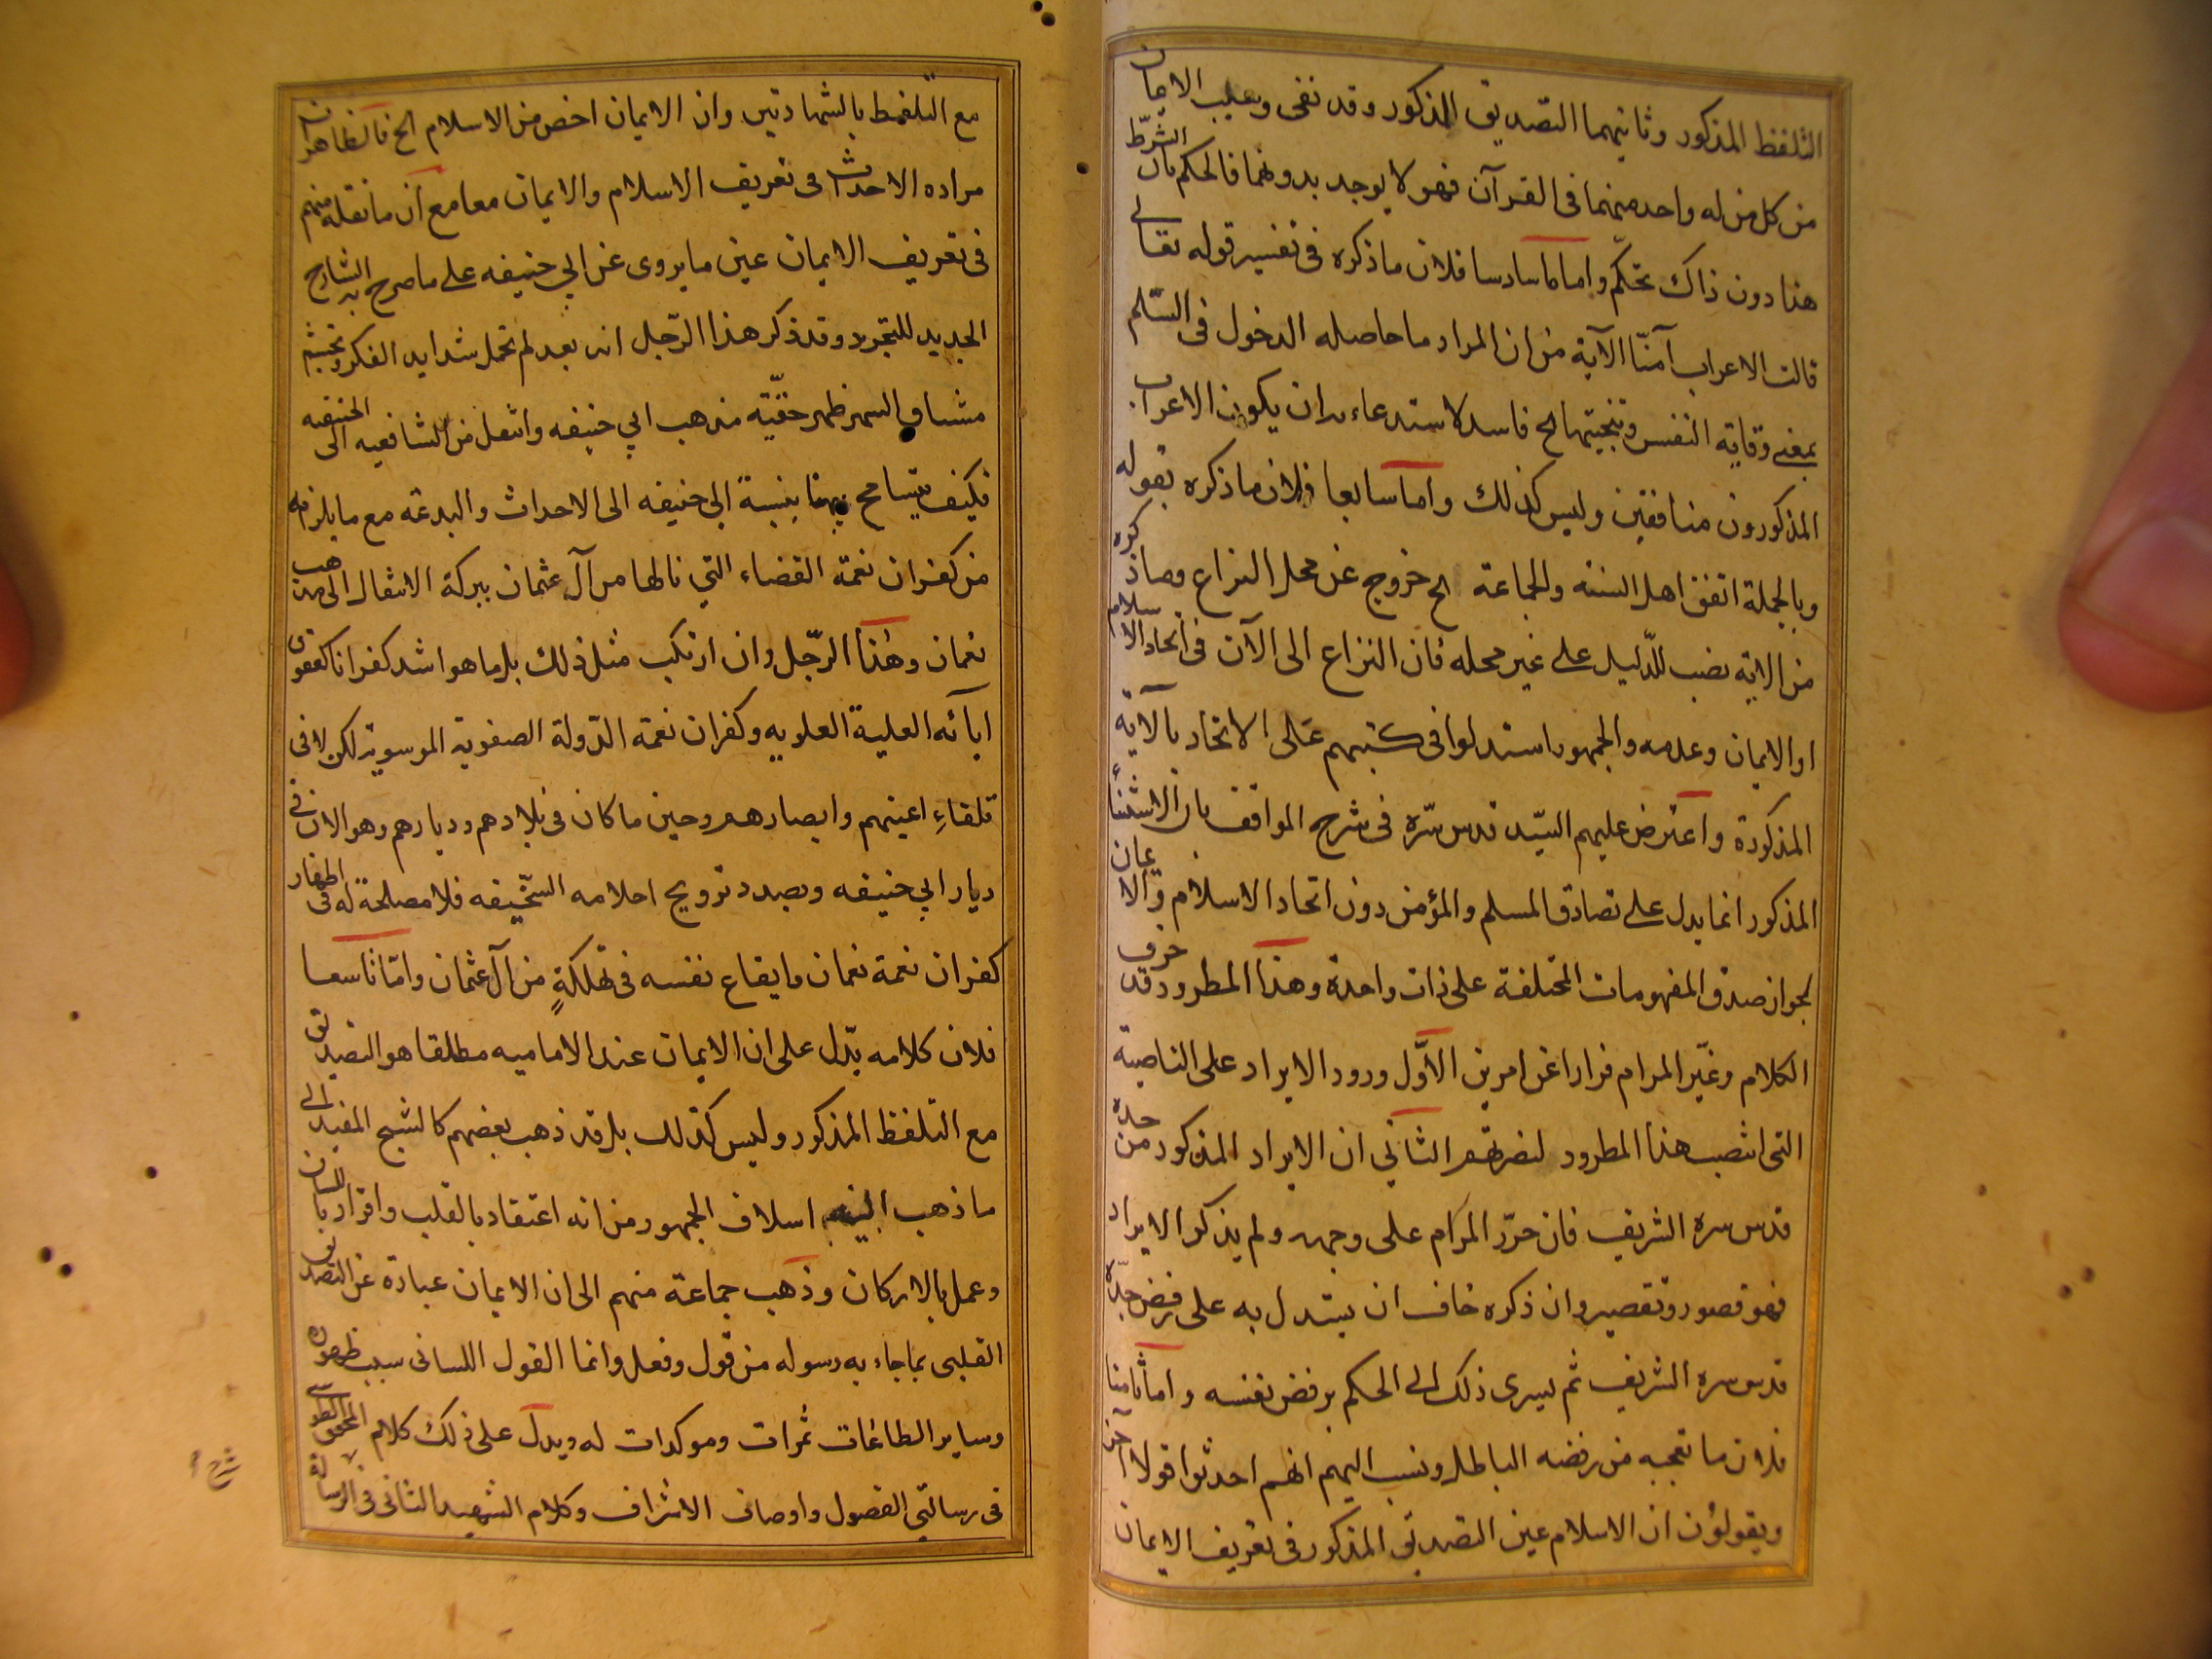 التلفظ المذكور وثانيهما التصديق المذكور وقد نفى وسلب الايمان
من كل من له واحد منهما فى القرآن فهو لا يوجد بدونهما فالحكم بان الشرط
هنا دون ذاك تحكّم واما سادسا فلان ما ذكره فى تفسير قوله تعالى
قالت الاعراب آمنّا الآية من ان المراد ما حاصله الدخول فى السّلم
بمعنى وقاية النفس وتنجيتها الخ فاسد لاستدعاءه ان يكون الاعراب
المذكورون منافقين وليس كذلك واما سابعا فلان ما ذكره بقوله
وبالجملة اتفق اهل السنه والجماعة الخ خروج عن محل النزاع وما ذكره
من الاية نصب للدّليل على غير محله فان النزاع الى الآن فى اتحاد الاسلام
او الايمان وعدمه والجمهور استدلوا فى كتبهم على الاتحاد بالآية
المذكورة واعترض عليهم السيّد قدس سرّه فى شرح المواقف بان الاستثناء
المذكور انما يدل على تصادق المسلم والمؤمن دون اتحاد الاسلام والايمان
لجواز صدق المفهومات المختلفة على ذات واحدة وهذا المطرود قد حرف
الكلام وغيّر المرام فرارا عن امرين الاوّل ورود الايراد على الناصبة
التى انتصب هذا المطرود لنصرتهم الثانى ان الايراد المذكور من جده
قدس سره الشريف فان حرّر المرام على وجهه ولم يذكر الايراد
فهو قصور وتقصير وان ذكره خاف ان يستدل به على رفض جدّه
قدس سره الشريف ثم يسرى ذلك الى الحكم برفض نفسه واما ثامنا
فلان ما تعجبه من رفضه الباطل ونسب اليهم انهم احدثوا قولا آخر
ويقولون ان الاسلام عين التصديق المذكور فى تعريف الايمان
مع التلفظ بالشهادتين وان الايمان اخص من الاسلام الخ فالظاهر ان
مراده الاحداث فى تعريف الاسلام والايمان معا مع ان ما نقله منهم
فى تعريف الايمان عين ما يروى عن ابي حنيفه على ما صرح به الشارح
الجديد للتجريد وقد ذكر هذا الرّجل انه بعد لم تحمل شدايد الفكر وتجشم
مشاق السهر ظهر حقّيّة مذهب ابي حنيفه وانتقل من الشافعيه الى الحنفيه
فكيف يتسامح بهنا بنسبة ابي حنيفه الى الاحداث والبدعة مع ما يلزمه
من كفران نعمة القضاء التي نالها من آل عثمان ببركة الانتقال الى مذهب
نعمان وهذا الرّجل وان ارتكب مثل ذلك بل ما هو اشد كفرانا كعقوق
ابائه العلية العلويه وكفران نعمة الدّولة الصفوية الموسوية لكن لا فى
تلقاءِ اعينهم وابصارهم وحين ما كان فى بلادهم وديارهم وهو الان فى
ديار ابي حنيفه وبصدد ترويج احلامه السّخيفه فلا مصلحة له فى اظهار
كفران نعمة نعمان وايقاع نفسه فى تهلكةٍ من آل عثمان وامّا تاسعا
فلان كلامه يدّل على ان الايمان عند الاماميه مطلقا هو التصديق
مع التلفظ المذكور وليس كذلك بل قد ذهب بعضهم كالشيخ المفيد الى
ما ذهب اليه اسلاف الجمهور من انه اعتقاد بالقلب واقرار باللسان
وعمل بالاركان وذهب جماعة منهم الى ان الايمان عبارة عن التصديق
القلبى بما جاء به رسوله من قول وفعل وانما القول اللسانى سبب ظهوره
وساير الطاعات ثمرات وموكدات له ويدل على ذلك كلام المحقق الطوسي
فى رسالتي الفصول واوصاف الاشراف وكلام الشهيد الثانى فى الرسالة
شرح